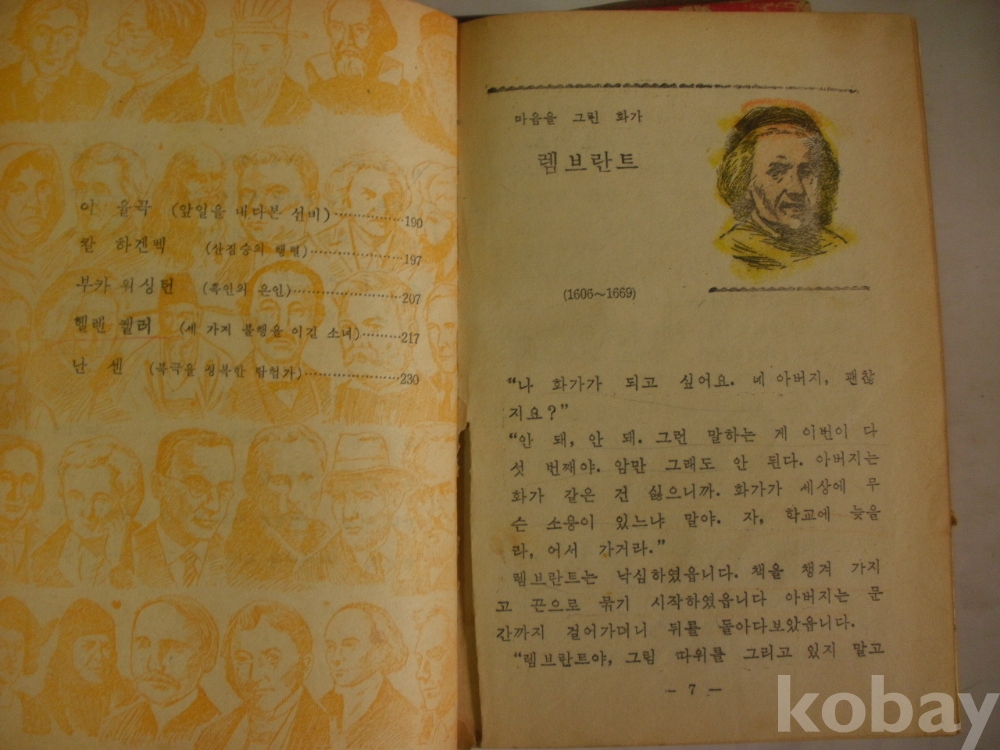 이 율곡 (앞일을 내다본 선비)············190
칼 하겐벡 (산짐승의 행렬)············197
부카 워싱턴 (흑인의 은인)···············207
헬렌 켈러 (세 가지 불행을 이긴 소녀)·········217
난 센 (북극을 정복한 탐험가)···············230
마음을 그린 화가
렘브란트
(1606~1669)
“나 화가가 되고 싶어요. 네 아버지, 괜찮
지요?”
“안 돼, 안 돼. 그런 말하는 게 이번이 다
섯 번째야. 암만 그래도 안 된다. 아버지는
화가 같은 건 싫으니까. 화가가 세상에 무
슨 소용이 있느냐 말야. 자, 학교에 늦을
라, 어서 가거라.”
렘브란트는 낙심하였읍니다. 책을 챙겨 가지
고 끈으로 묶기 시작하였읍니다 아버지는 문
간까지 걸어가더니 뒤를 돌아다보았읍니다.
“렘브란트야, 그림 따위를 그리고 있지 말고
— 7 —
kobay